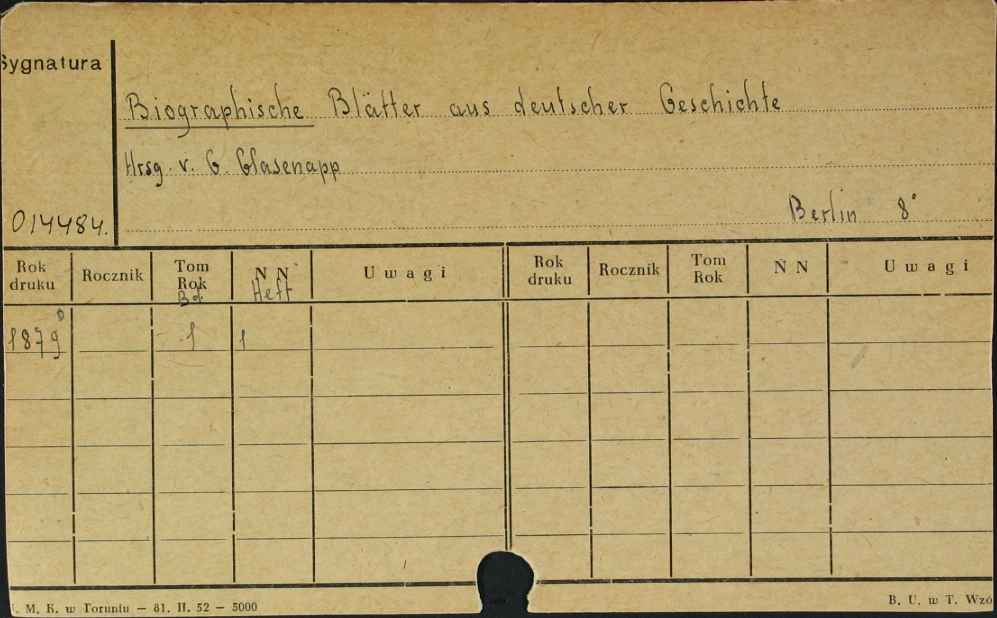 Sygnatura
Biographische Blätter aus deutscher Geschichte
Hrsg. v. G. Glasenapp
014484.
Berlin 8°
Rok druku Rocznik Tom Rok Bd. N N Heft Uwagi Rok druku Rocznik Tom Rok N N Uwagi
1879 1 1
M. K. w Toruniu — 81. II. 52 — 5000
B. U. w T. Wzó